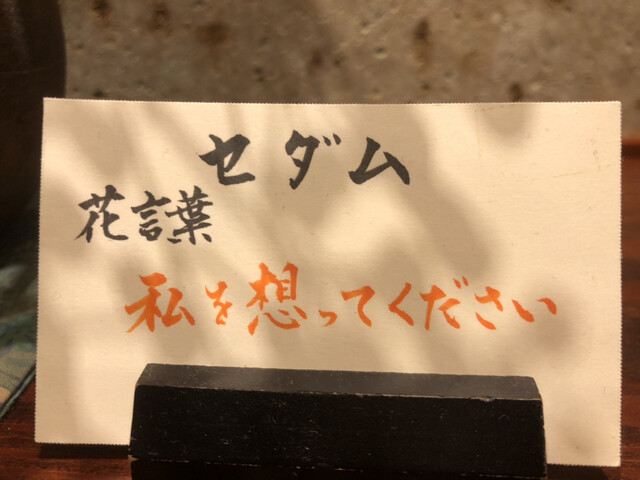 セダム
花言葉
私を想ってください